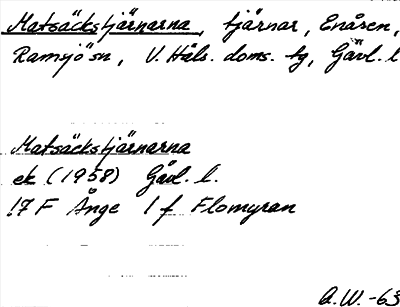 Matsäckstjärnarna, tjärnar, Enåsen,
Ramsjö sn, V. Häls. doms. tg, Gävl. l
Matsäckstjärnarna
ek (1958) Gävl. l.
17 F Ånge 1 f Flomyran
A.W. -63